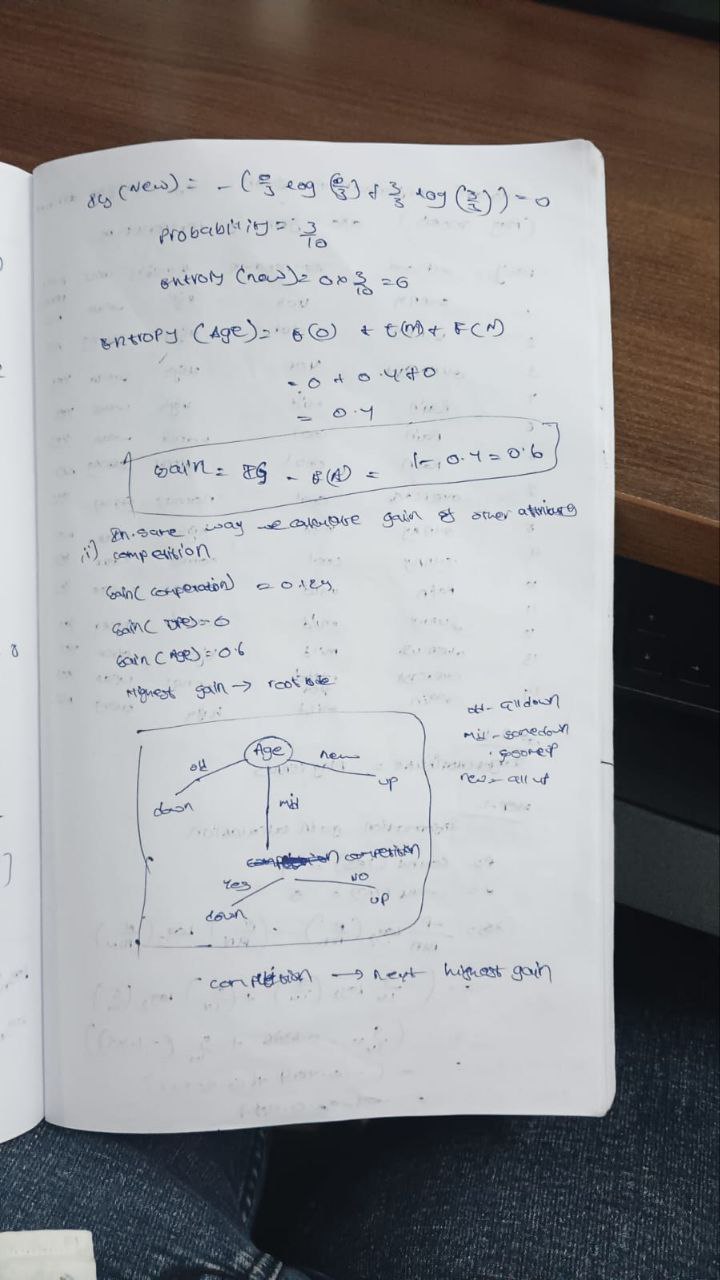 Ig (New) = - (0/3 log (0/3) + 3/3 log (3/3)) = 0
Probability = 3/10
Entropy (new) = 0 x 3/10 = 0
Entropy (Age) = E(O) + E(M) + E(N)
= 0 + 0.4 + 0
= 0.4
Gain = EG - E(A) = 1 - 0.4 = 0.6
In same way we calculate gain of other attributes
ii) competition
Gain( competition) = 0.124
Gain( type) = 0
Gain (Age) = 0.6
Highest gain → root
old - all down
mid - some down
some up
new - all up
Age
old
new
down
mid
up
competition
Yes
NO
down
up
competition → next highest gain